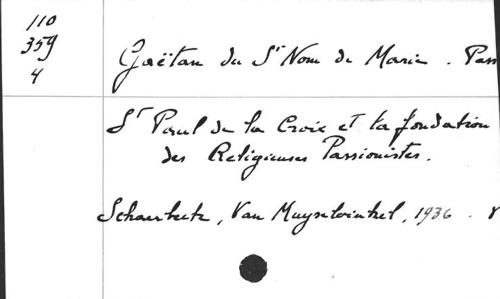 110
359
4
Gaëtan du St Nom de Marie. Pass
St Paul de la Croix et la fondation
des Religieuses Passionistes.
Schaerbeek, Van Muysewinkel, 1936.